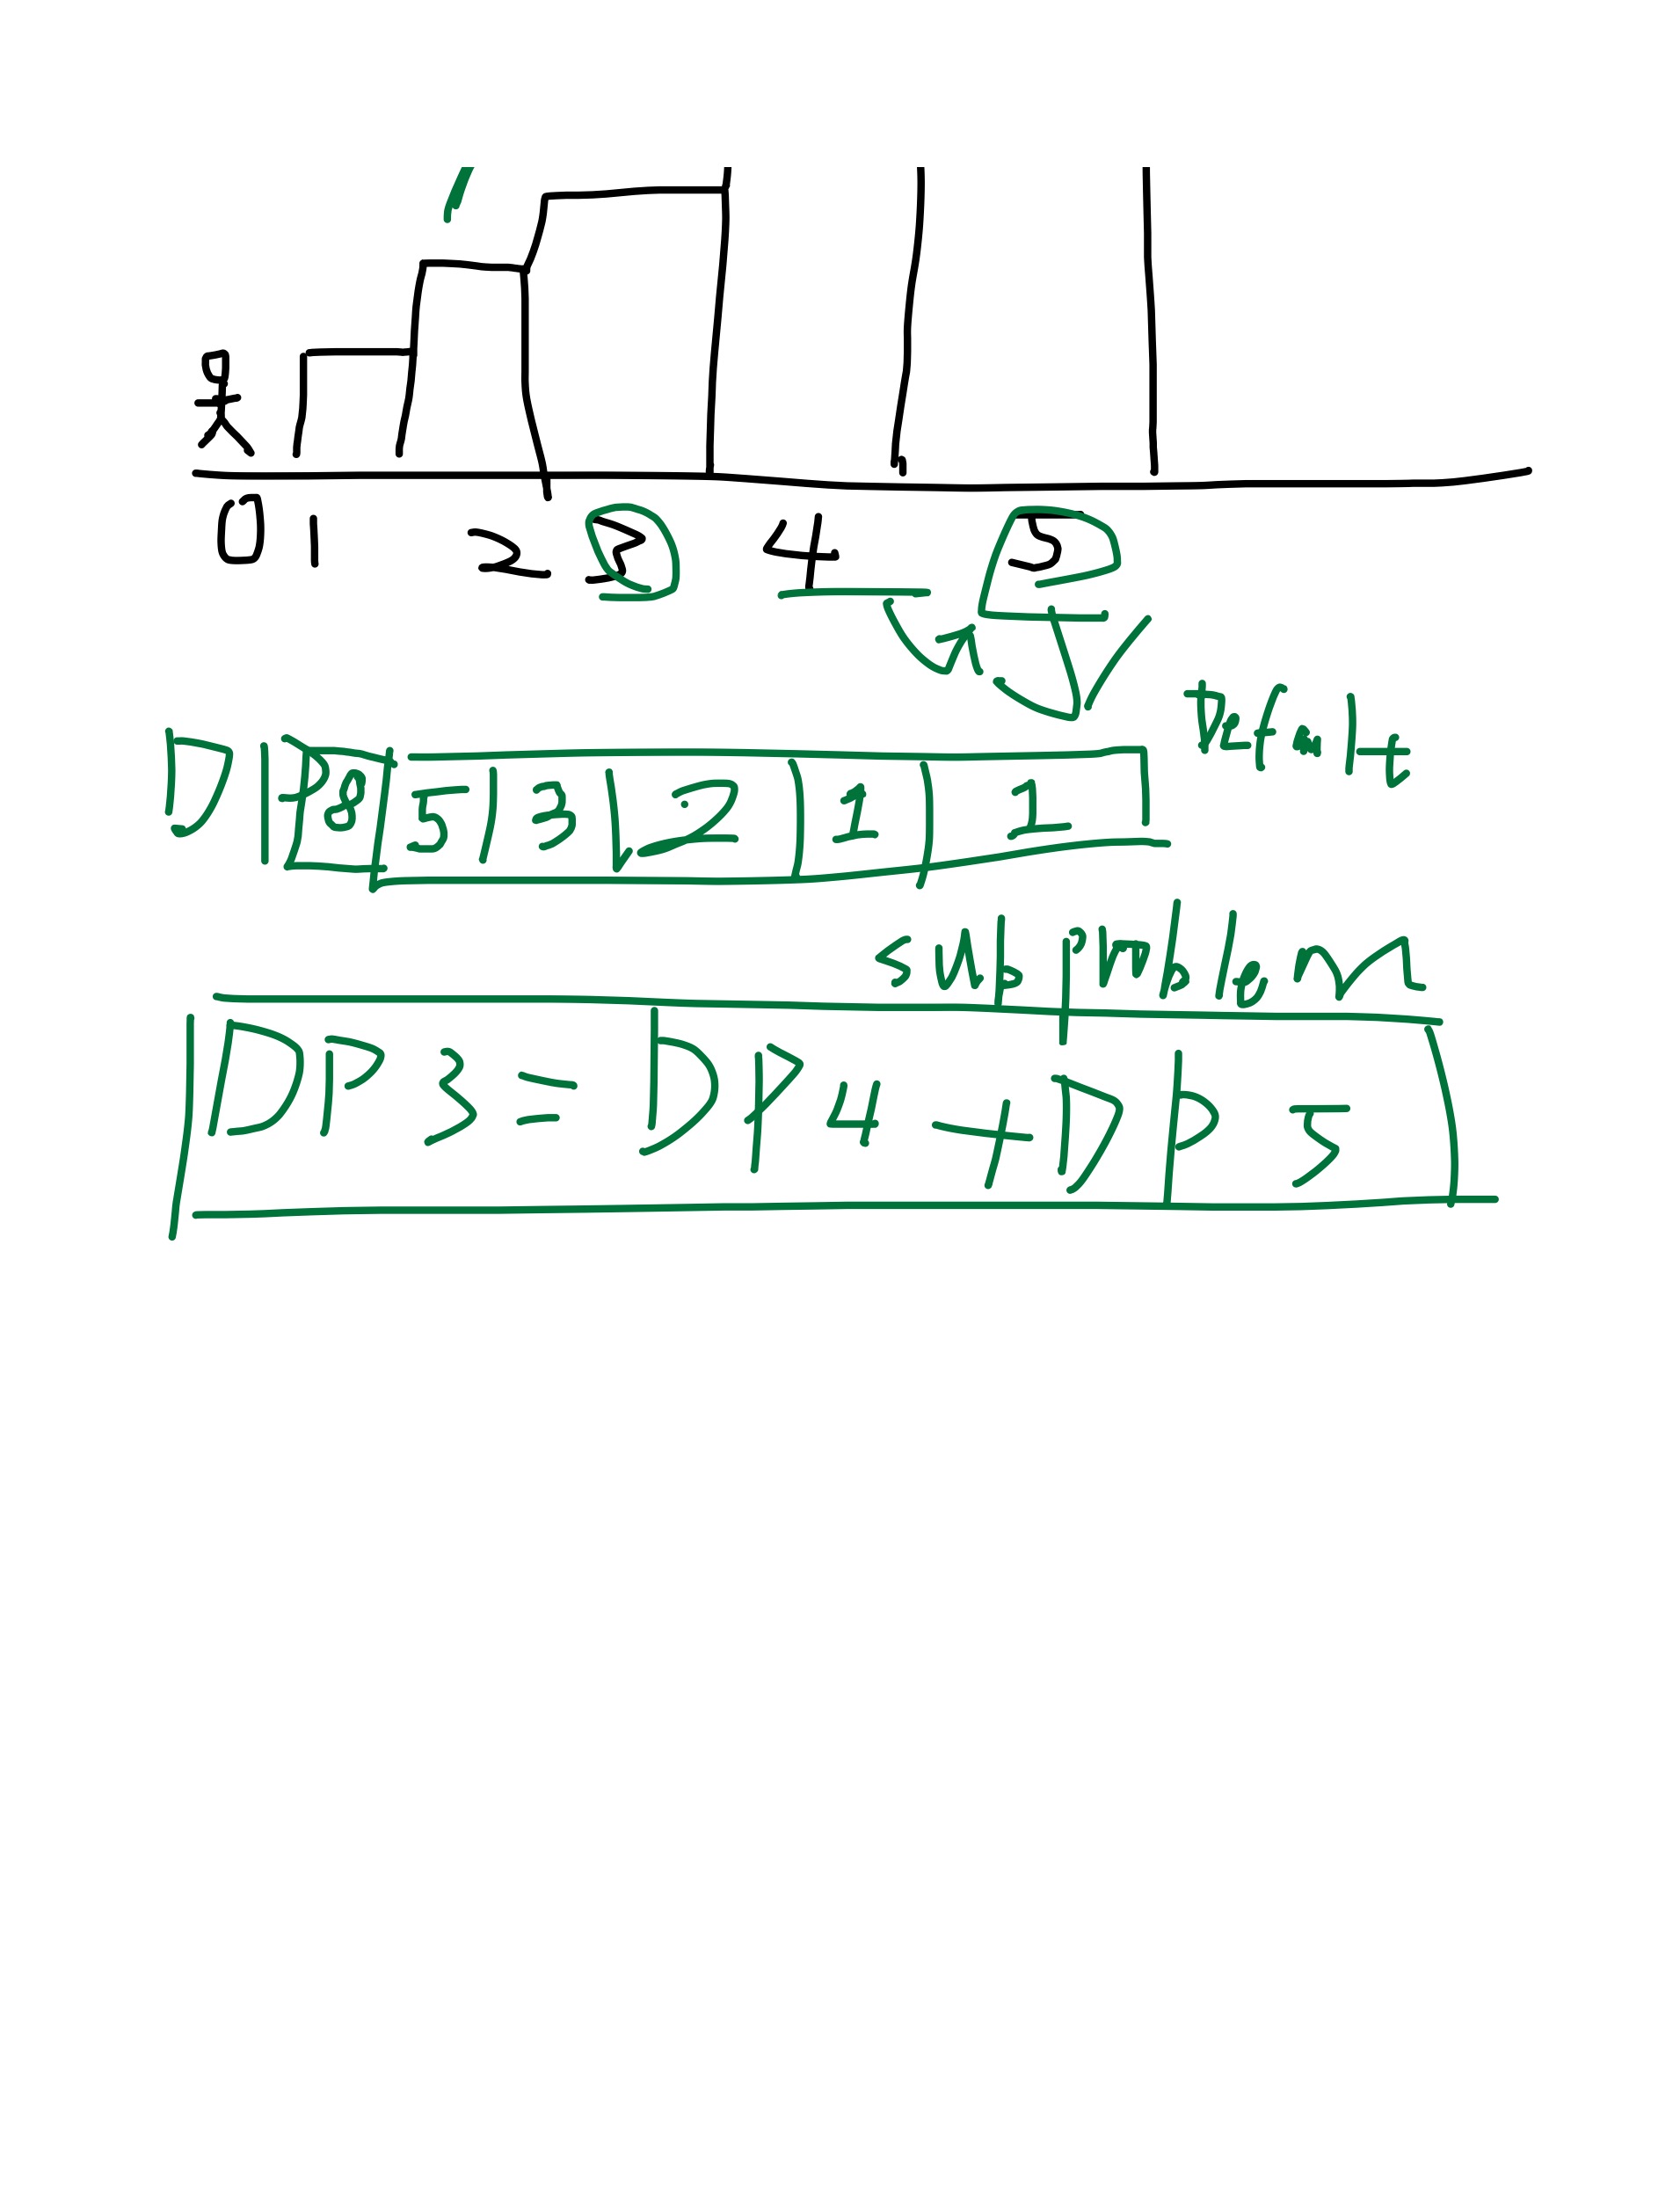 0 1 2 3 4 5
Default
DP 8 5 3 2 1 1
subproblem
DP 3 = DP 4 + DP 5